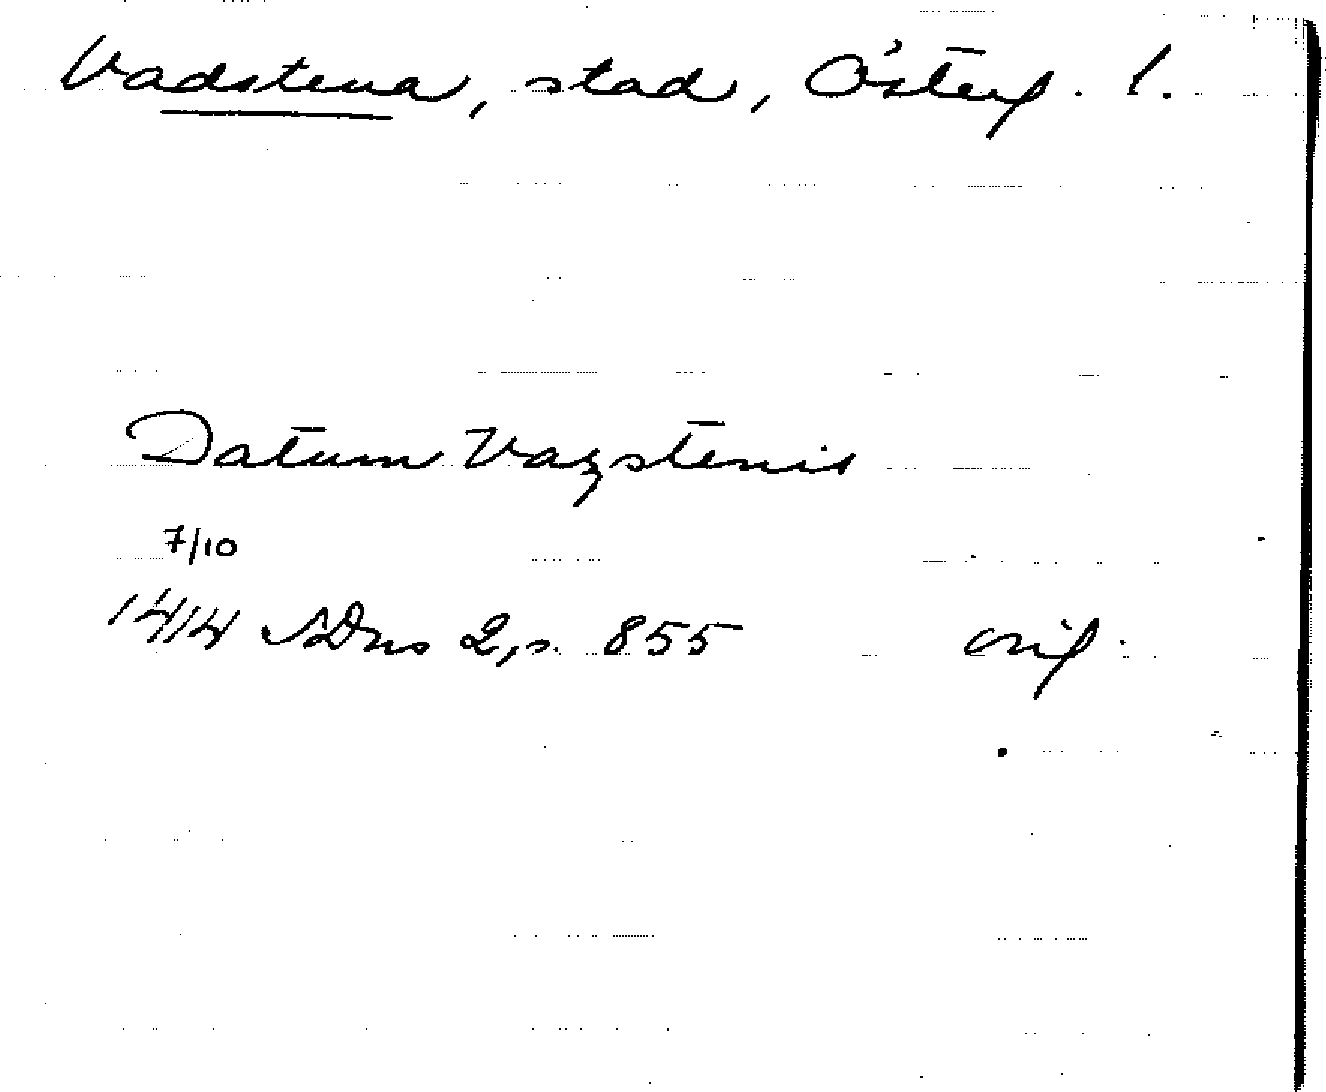 Vadstena, stad, Österg. l.
Datum Vazstenis
7/10
1414 SDns 2, s. 855 orig.